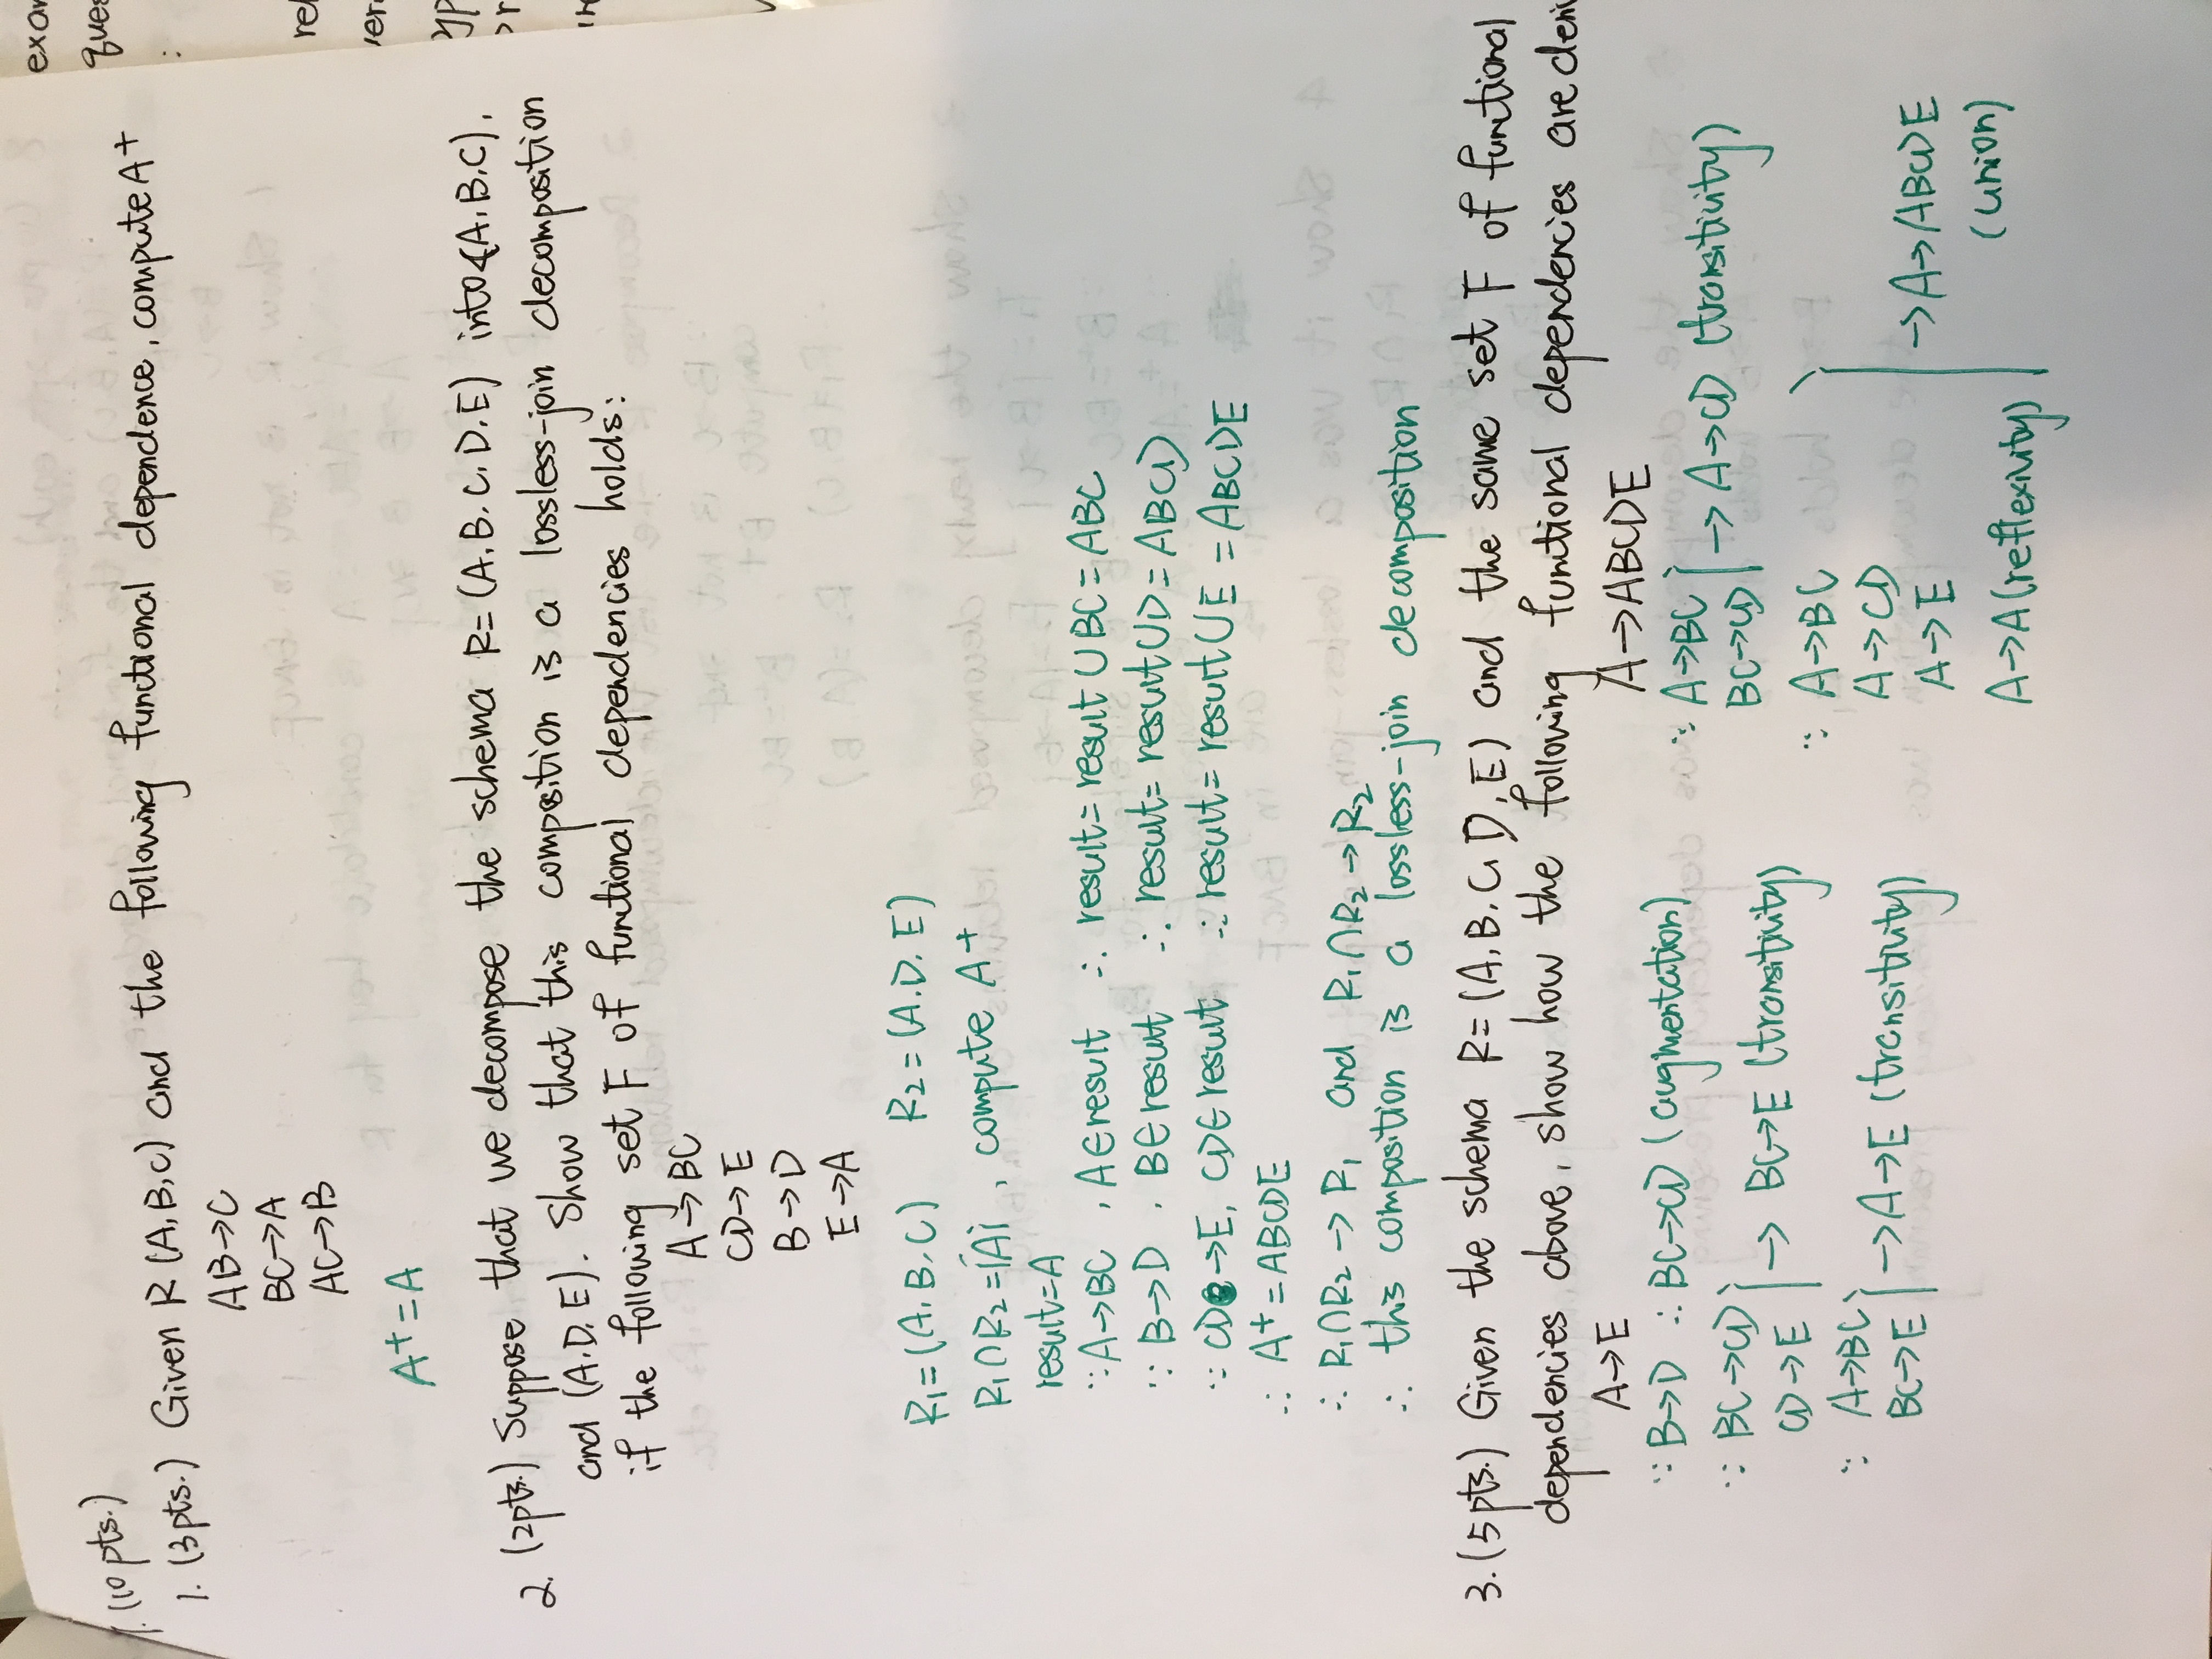 1. (10 pts.)
1. (3pts.) Given R (A, B, C) and the following functional dependence, compute A+
AB→C
BC→A
AC→B
A+=A
2. (2pts.) Suppose that we decompose the schema R= (A, B, C, D, E) into (A, B, C),
and (A, D, E). Show that this composition is a lossless-join decomposition
if the following set F of functional dependencies holds:
A→BC
CD→E
B→D
E→A
R1=(A, B, C) R2=(A, D, E)
R1∩R2={A}, compute A+
result=A
∵A→BC , A∈result ∴ result= result ∪ BC = ABC
∵ B→D , B∈result ∴ result= result∪D = ABCD
∵ CD→E, CD∈result ∴ result= result∪E = ABCDE
∴ A+ = ABCDE
∴ R1∩R2 → R1 and R1∩R2 → R2
∴ this composition is a lossless-join decomposition
3. (5pts.) Given the schema R= (A, B, C, D, E) and the same set F of functional
dependencies above, show how the following functional dependencies are deri
A→E
∵ B→D ∴ BC→CD (augmentation)
∵ BC→CD
CD→E
→ BC→E (transitivity)
∵ A→BC
BC→E
→A→E (transitivity)
A→ABCDE
∵ A→BC
BC→CD
→ A→CD (transitivity)
∵ A→BC
A→CD
A→E
A→A (reflexivity)
→A→ABCDE
(union)
exam
ques
:
rel